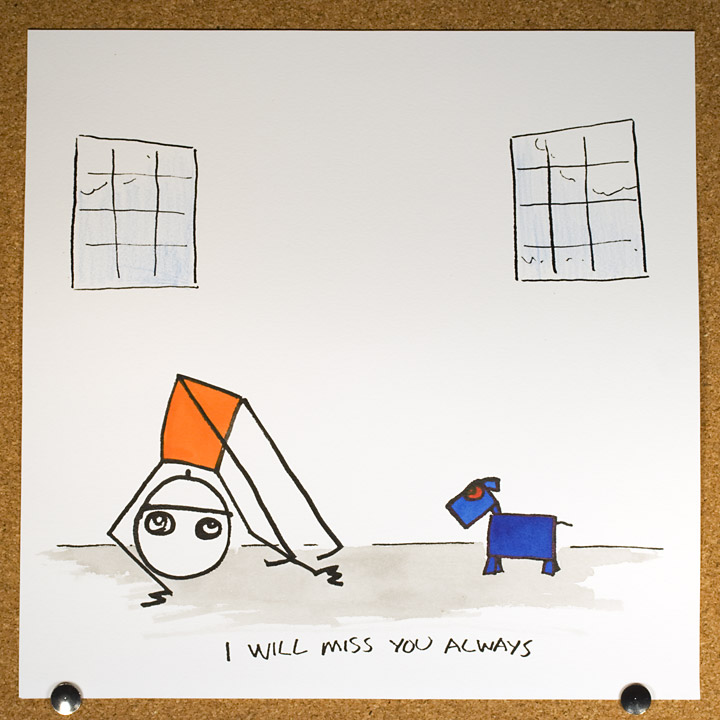 I WILL MISS YOU ALWAYS